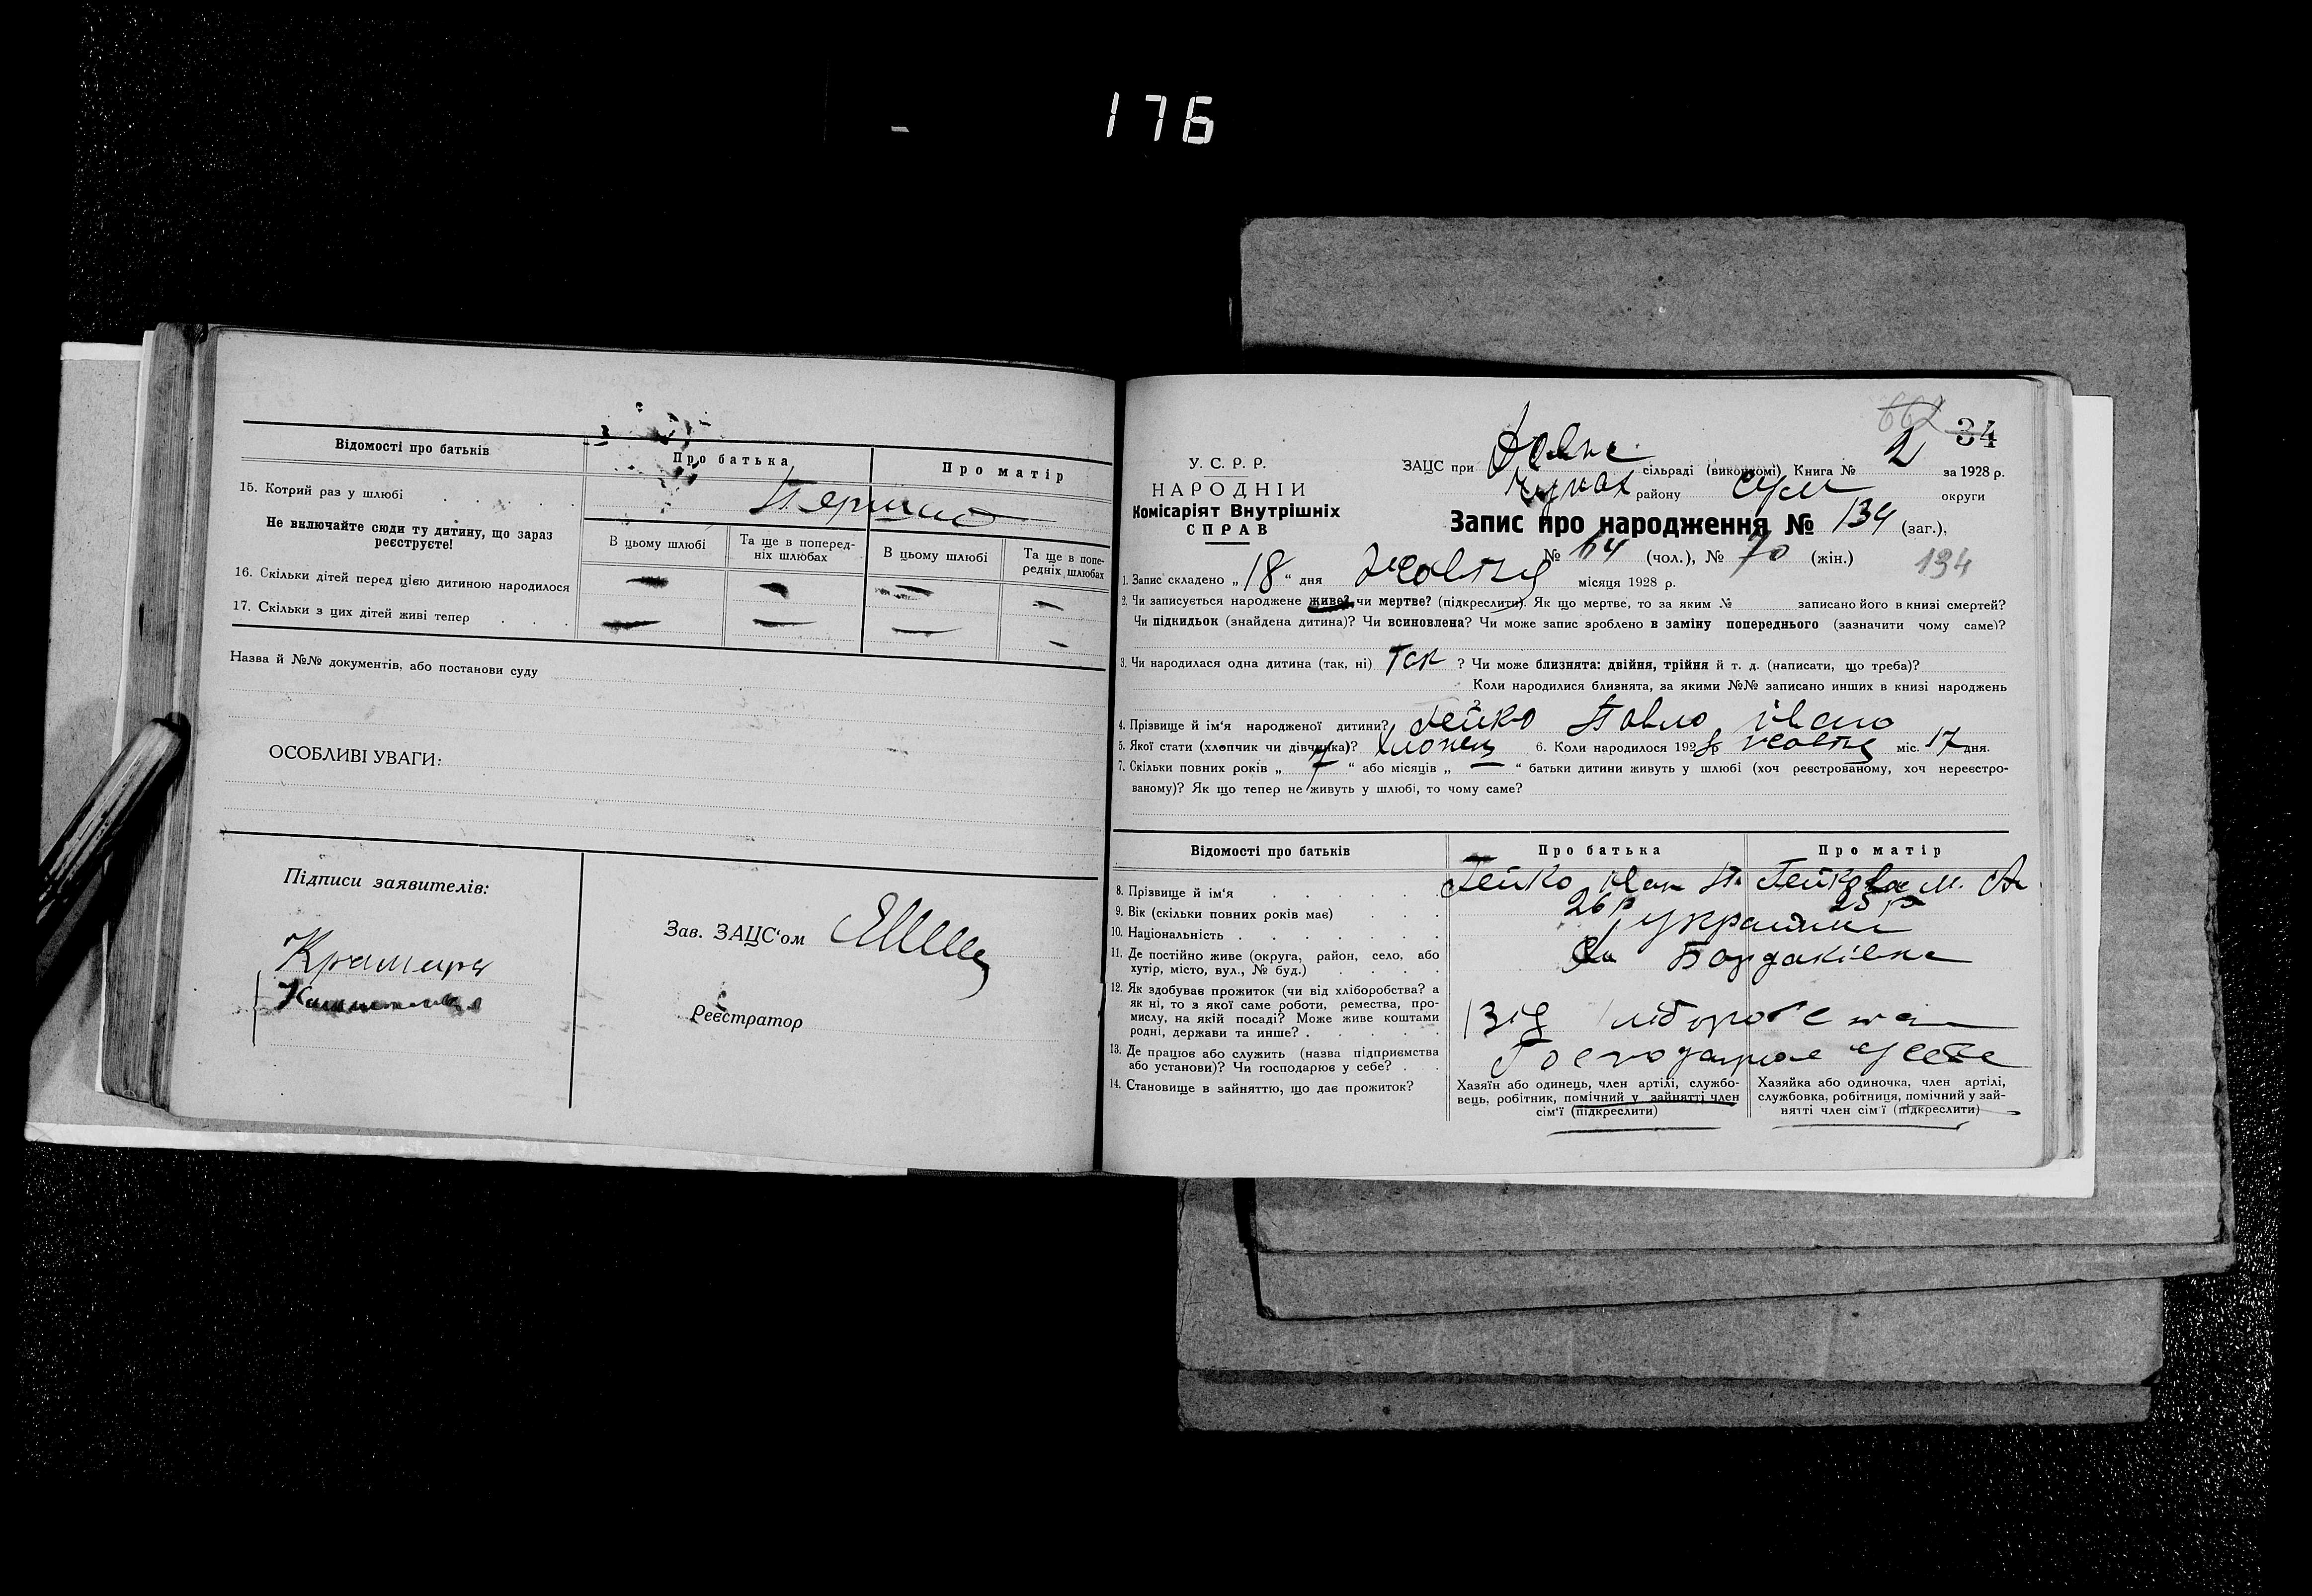 176
Відомості про батьків
Про батька
Про матір
15. Котрий раз у шлюбі
Не включайте сюди ту дитину, що зараз
реєструєте!
В цьому шлюбі
Та ще в поперед-
ніх шлюбах
В цьому шлюбі
Та ще в попе-
редніх шлюбах
16. Скільки дітей перед цією дитиною народилося
17. Скільки з цих дітей живі тепер
Назва й №№ документів, або постанови суду
ОСОБЛИВІ УВАГИ:
Підписи заявителів:
Крамаря
Зав. ЗАЦС‘ом
Реєстратор
662 34
У. С. Р. Р.
НАРОДНІЙ
Комісаріят Внутрішніх
СПРАВ
ЗАЦС при сільраді (виконкомі) Книга № 2 за 1928 р.
району Суми округи
Запис про народження № 134 (заг.),
№ 64 (чол.), № 70 (жін.) 134
1. Запис складено „18“ дня Жовтня місяця 1928 р.
2. Чи записується народжене живе? чи мертве? (підкреслити). Як що мертве, то за яким № записано його в книзі смертей?
Чи підкидьок (знайдена дитина)? Чи всиновлена? Чи може запис зроблено в заміну попереднього (зазначити чому саме)?
3. Чи народилася одна дитина (так, ні) Так ? Чи може близнята: двійня, трійня й т. д. (написати, що треба)?
Коли народилися близнята, за якими №№ записано инших в книзі народжень
?
4. Прізвище й ім‘я народженої дитини? Гейко Павло Івано
5. Якої стати (хлопчик чи дівчинка)? хлопець 6. Коли народилося 1928 р. жовтня міс. 17 дня.
7. Скільки повних років „7“ або місяців „—“ батьки дитини живуть у шлюбі (хоч реєстрованому, хоч нереєстро-
ваному)? Як що тепер не живуть у шлюбі, то чому саме?
Відомості про батьків
Про батька
Про матір
8. Прізвище й ім‘я Гейко Іван П. Гейкова М. А.
9. Вік (скільки повних років має) 26 р 25 р
10. Національність українці
11. Де постійно живе (округа, район, село, або
хутір, місто, вул., № буд.) Бардаківка
12. Як здобуває прожиток (чи від хліборобства? а
як ні, то з якої саме роботи, ремества, про-
мислу, на якій посаді? Може живе коштами
родні, держави та инше?
Від хліборобства
13. Де працює або служить (назва підприємства
або установи)? Чи господарює у себе?
Господарює у себе
14. Становище в зайняттю, що дає прожиток?
Хазяїн або одинець, член артілі, службо-
вець, робітник, помічний у зайнятті член
сім‘ї (підкреслити)
Хазяйка або одиночка, член артілі,
службовка, робітниця, помічний у зай-
нятті член сім‘ї (підкреслити)